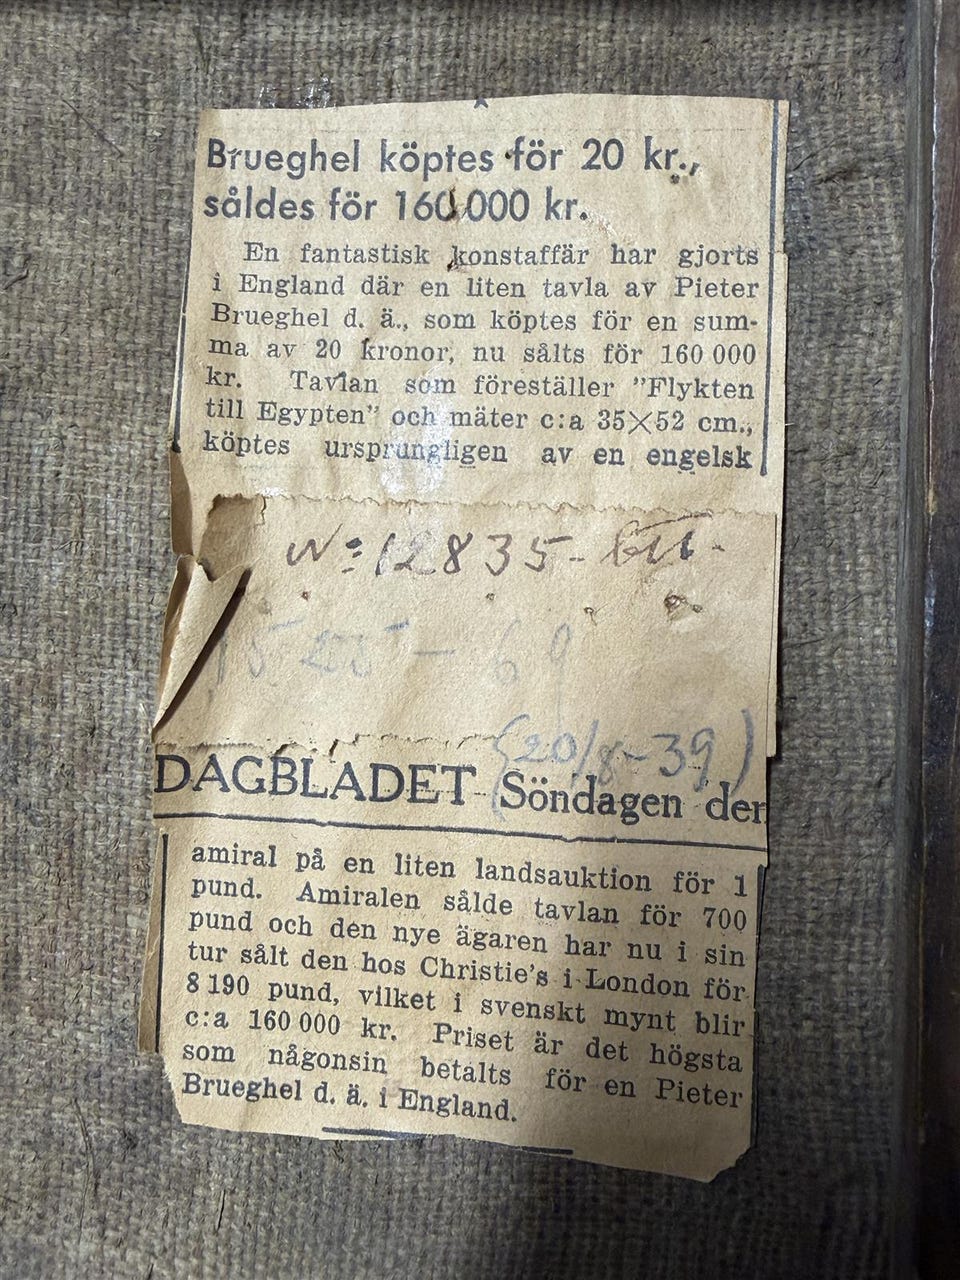 Brueghel köptes för 20 kr.,
såldes för 160 000 kr.
En fantastisk konstaffär har gjorts
i England där en liten tavla av Pieter
Brueghel d. ä., som köptes för en sum-
ma av 20 kronor, nu sålts för 160 000
kr. Tavlan som föreställer ”Flykten
till Egypten” och mäter c:a 35×52 cm.,
köptes ursprungligen av en engelsk
No: 12835-
69
(20/8-39)
DAGBLADET Söndagen den
amiral på en liten landsauktion för 1
pund. Amiralen sålde tavlan för 700
pund och den nye ägaren har nu i sin
tur sålt den hos Christie's i London för
8 190 pund, vilket i svenskt mynt blir
c:a 160 000 kr. Priset är det högsta
som någonsin betalts för en Pieter
Brueghel d. ä. i England.